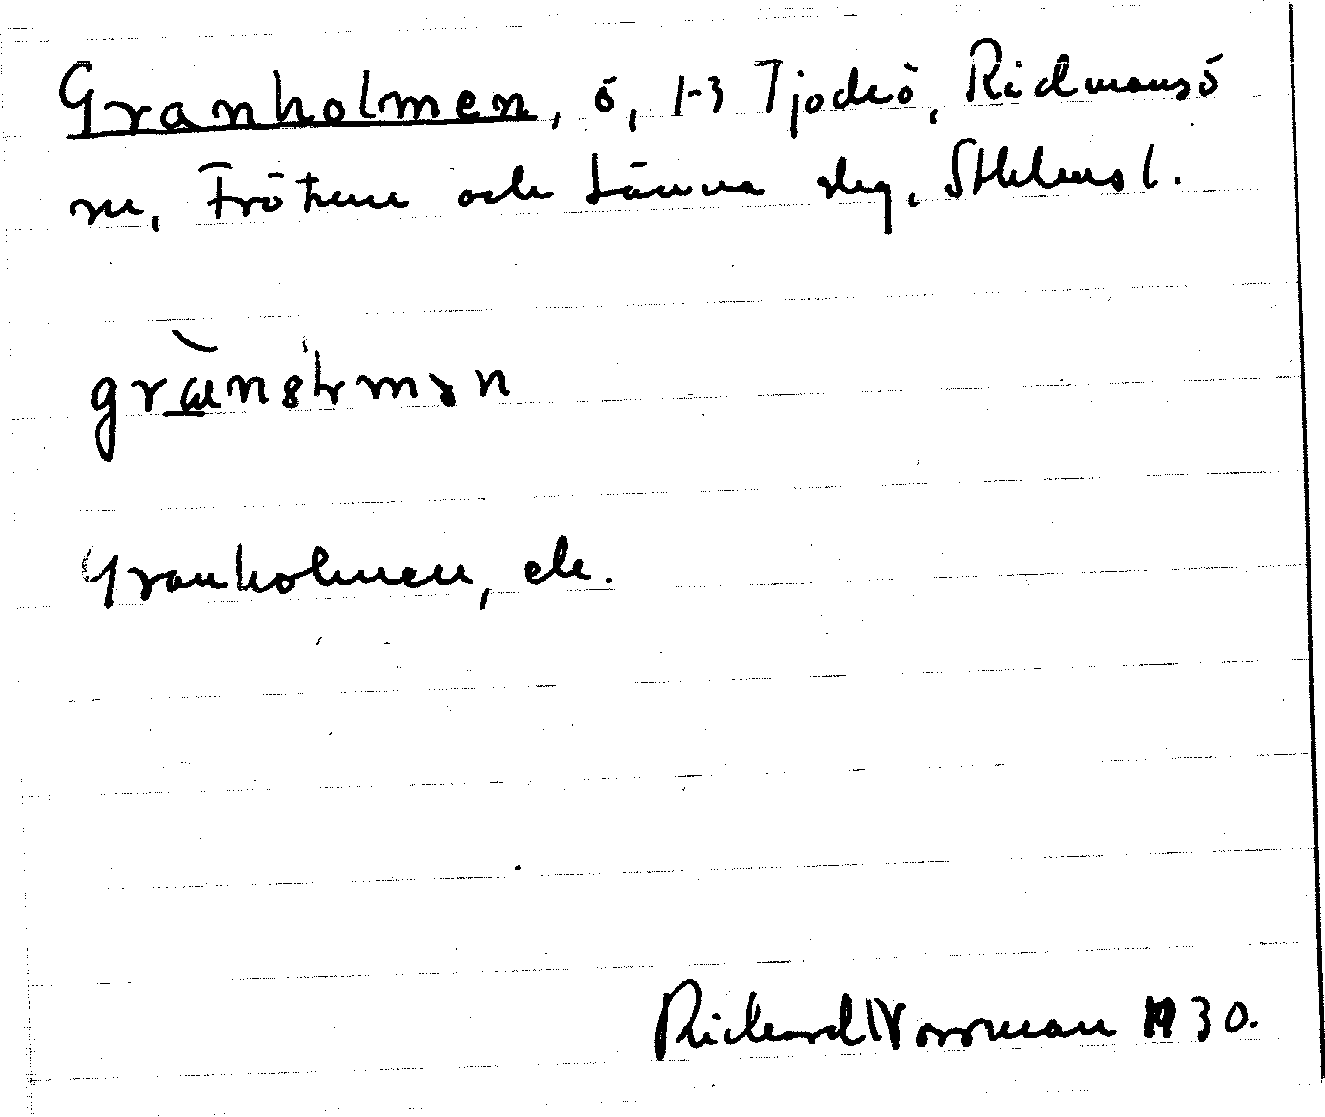 Granholmen, ö, 1-3 Tjockö, Rådmansö
sn, Frötuna och Länna skg, Sthlms l.
Granholmen, ek.
Richard Norrman 1930.